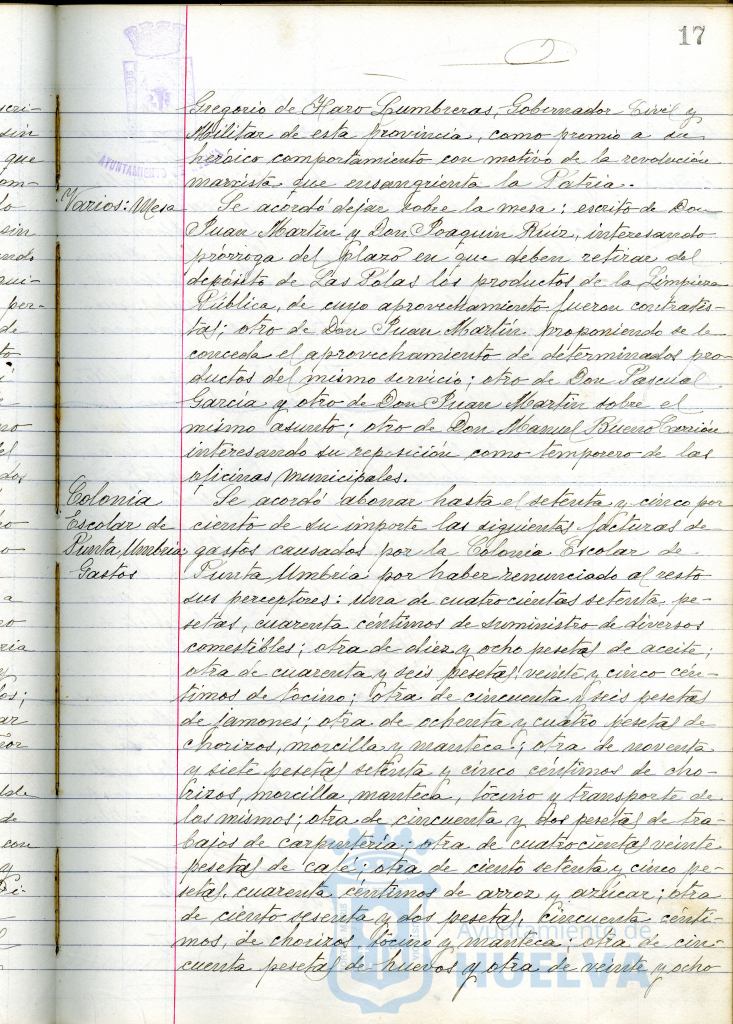 17
Gregorio de Haro Lumbreras, Gobernador Civil y
Militar de esta provincia, como premio a su
heróico comportamiento con motivo de la revolución
marxista que ensangrienta la Patria.
Varios: Mesa
Se acordó dejar sobre la mesa: escrito de Don
Juan Martín y Don Joaquin Ruiz, interesando
prórroga del plazo en que deben retirar del
depósito de Las Polas los productos de la Limpieza
Pública, de cuyo aprovechamiento fueron contratis-
tas; otro de Don Juan Martín proponiendo se le
conceda el aprovechamiento de determinados pro-
ductos del mismo servicio; otro de Don Pascual
García y otro de Don Juan Martin sobre el
mismo asunto; otro de Don Manuel Bueno Carrión
interesando su reposición como temporero de las
oficinas municipales.
Colonia
Escolar de
Punta Umbria
Gastos
Se acordó abonar hasta el setenta y cinco por
ciento de su importe las siguientes facturas de
gastos causados por la Colonia Escolar de
Punta Umbría por haber renunciado al resto
sus perceptores: una de cuatrocientas setenta pe-
setas, cuarenta céntimos de suministro de diversos
comestibles; otra de diez y ocho pesetas de aceite;
otra de cuarenta y seis pesetas, veinte y cinco cén-
timos de tocino; otra de cincuenta y seis pesetas
de jamones; otra de ochenta y cuatro pesetas de
chorizos, morcilla y manteca; otra de noventa
y siete pesetas setenta y cinco céntimos de cho-
rizos, morcilla, manteca, tocino y transporte de
los mismos; otra de cincuenta y dos pesetas de tra-
bajos de carpintería; otra de cuatrocientas veinte
pesetas de café; otra de ciento setenta y cinco pe-
setas, cuarenta céntimos de arroz y azúcar; otra
de ciento sesenta y dos pesetas, cincuenta cénti-
mos, de chorizos, tocino y manteca; otra de cin-
cuenta pesetas de huevos y otra de veinte y ocho
Ayuntamiento de
HUELVA